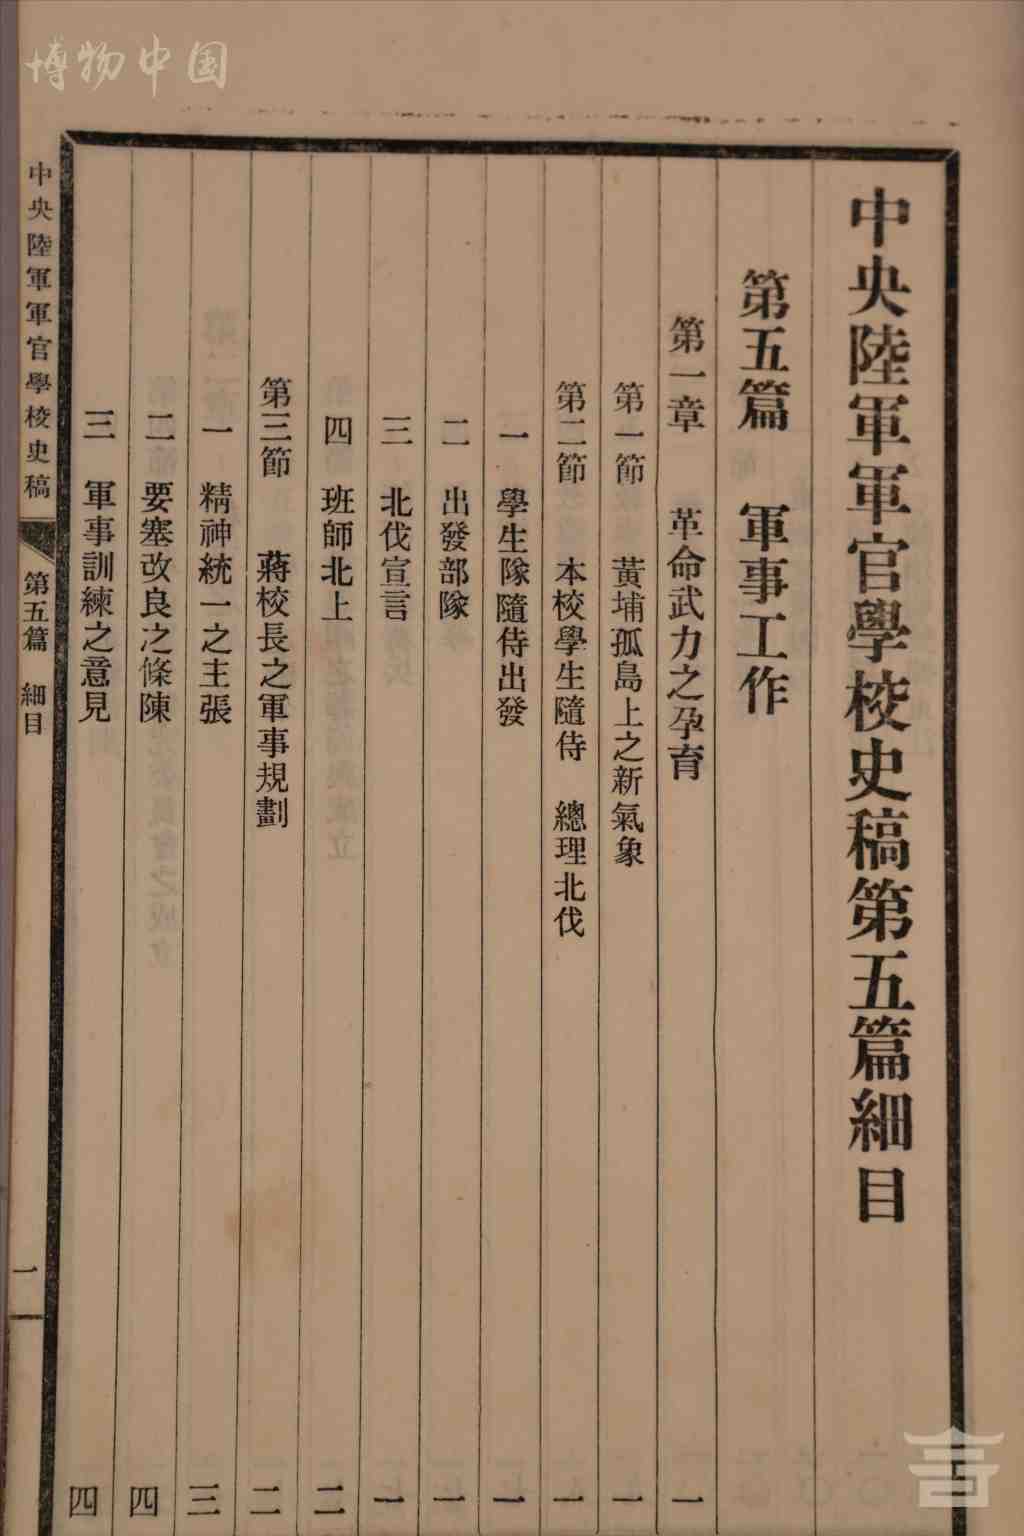 博物中国
中央陸軍軍官學校史稿第五篇細目
第五篇　軍事工作
第一章　革命武力之孕育　一
第一節　黃埔孤島上之新氣象　一
第二節　本校學生隨侍　總理北伐　一
一　學生隊隨侍出發　一
二　出發部隊　一
三　北伐宣言　一
四　班師北上　二
第三節　蔣校長之軍事規劃　二
一　精神統一之主張　三
二　要塞改良之條陳　四
三　軍事訓練之意見　四
中央陸軍軍官學校史稿　第五篇　細目　一